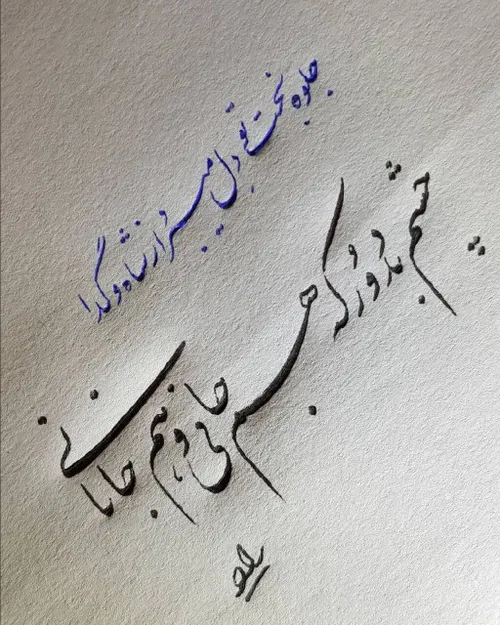 جلوه بخت تو دل میبرد از شاه و گدا
چشم بد دور که هم جانی و هم جانانی